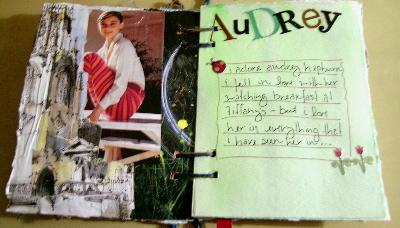 AuDRey
i adore audrey hepburn!
i fell in love with her
watching breakfast at
tiffany's - but i love
her in everything that
i have seen her in...